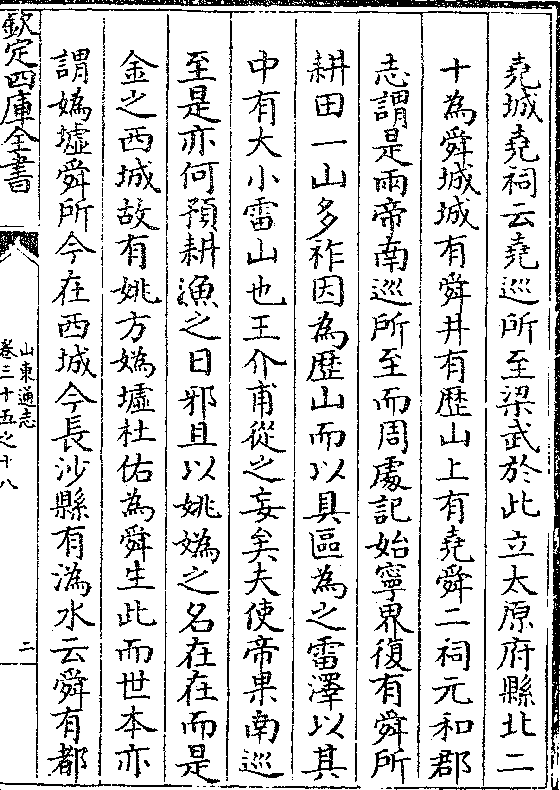 堯城堯祠云堯巡所至梁武於此立太原府縣北二
十為舜城城有舜井有歴山上有堯舜二祠元和郡
志謂是兩帝南巡所至而周處記始寧界復有舜所
耕田一山多柞因為歴山而以具區為之雷澤以其
中有大小雷山也王介甫從之妄矣夫使帝果南巡
至是亦何預耕漁之日邪且以姚媯之名在在而是
金之西城故有姚方媯墟杜佑為舜生此而世本亦
謂媯墟舜所今在西城今長沙縣有溈水云舜有都
欽定四庫全書
山東通志
卷三十五之十八
二